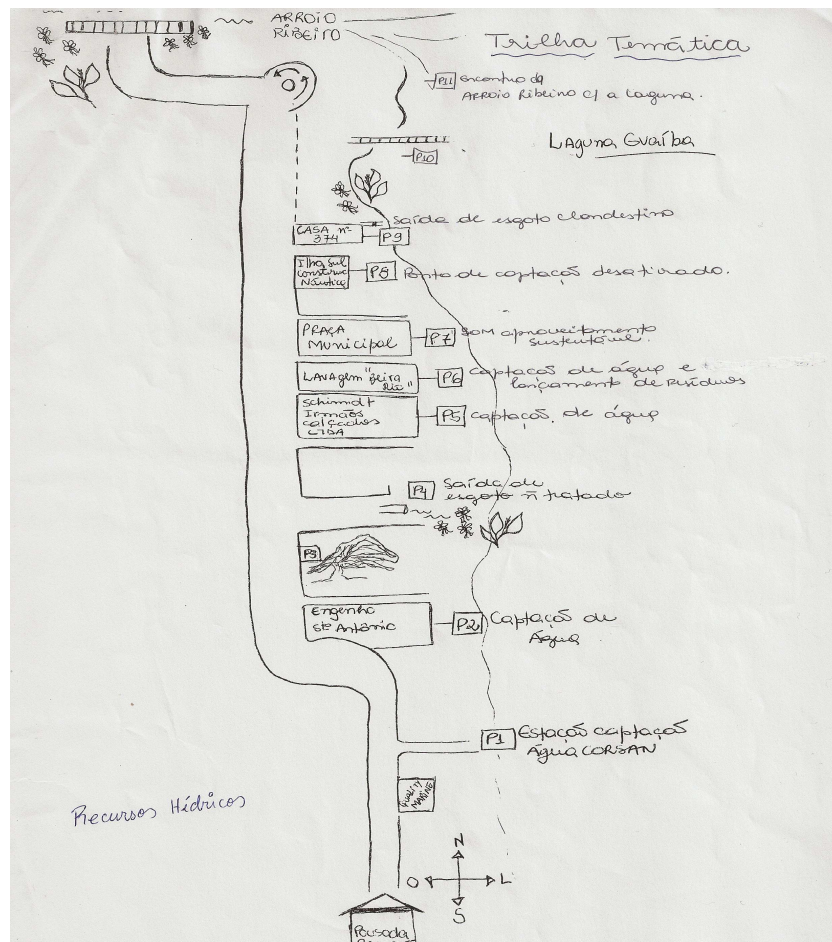 ARROIO
RIBEIRO
Trilha Temática
P11 encontro do
ARROIO Ribeiro c/ a laguna.
Laguna Guaíba
P10
Saída de esgoto clandestino
CASA nº
374
P9
Ilha Sul
construc
Náutica
P8 Ponto de captação desativado.
PRAÇA
Municipal
P7 BOM aproveitamento
sustentável.
LAVAGEM "Beira
Rio"
P6 Captacoš de água e
lançamento de Resíduos
Schimidt
Irmãos
calçados
LTDA
P5 captaçoš. de água
P4 Saída de
esgoto ñ tratado
P3
Engenho
Stº Antônio
P2 Captaçoš de
Água
P1 Estaçoš captaçoš
Água CORSAN
QUALITY
MARINE
Recursos Hídricos
N
O L
S
Pousada